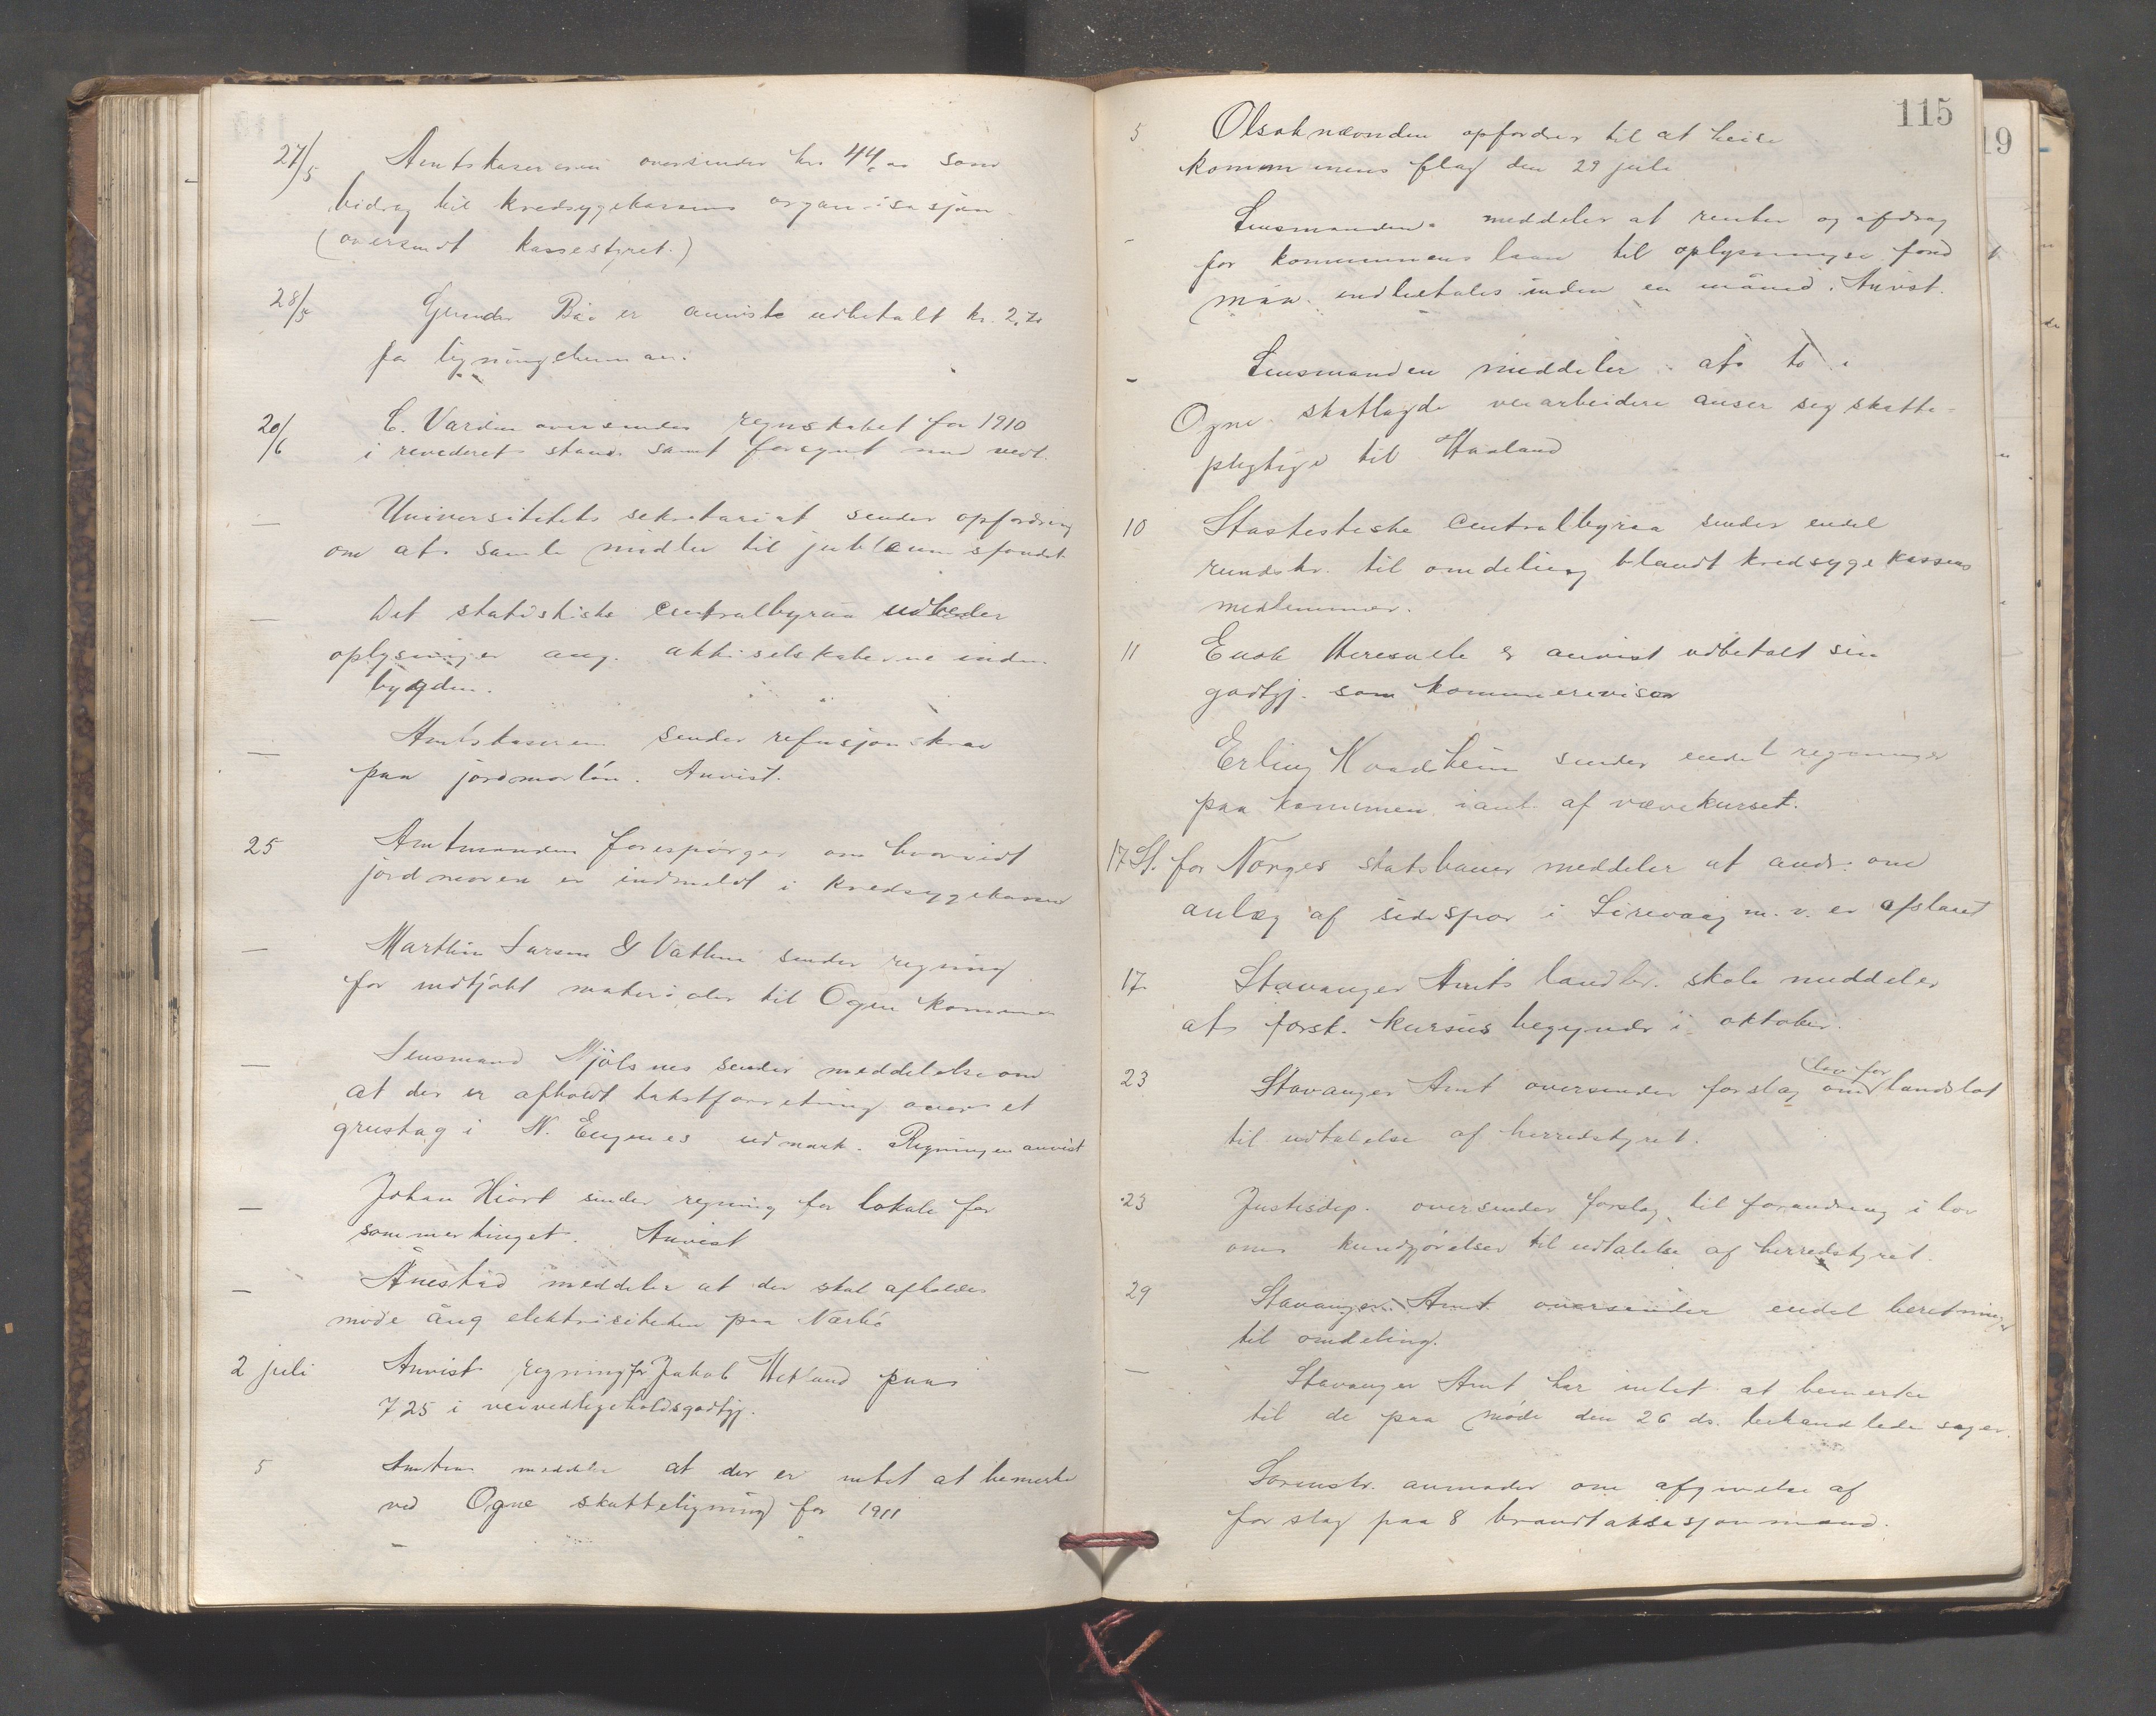 27/5 Amtskasereren oversender kr 44,00 som
bidrag til kredsygekassens organisasjon
(oversendt kassestyret.)
28/5 Gunder Bø er anviste udbetalt kr. 2,70
for ligningskummen.
20/6 C. Vardin oversender regnskabet for 1910
i revideret stand samt forsynt med vedt.
— Universitetets sekretariat sender opfordring
om at samle midler til jubilæumsfondet
— Det statistiske centralbyraa udbeder
oplysninger ang. aktiselskaberne inden
bygden.
— Amtskasereren sender refusjonskrav
paa jordmorløn. Anvist.
25 Amtmanden forespørger om hvorvidt
jordmoren er indmeldt i kredsygekassen
— Marthin Larsen & Vatne sender regning
for indkjøbt materialer til Ogne kommune
— Lensmand Mjølsnes sender meddelelse om
at der er afholdt takstforretning over et
grustag i N. Eugenes udmark. Regningen anvist
— Johan Hiort sender regning for lokale for
sommertinget. Anvist
— Ånestad meddeler at der skal afholdes
møde ang elektrisiteten paa Nærbø
2 juli Anvist regning for Jakob Hetland paa
725 i veivedligeholdsgodtgj.
5 Amtm meddeler at der er intet at bemerke
ved Ogne skatteligning for 1911
115
5 Olsoknævnden opfordrer til at heise
kommunens flag den 29 juli
- Lensmanden meddeler at renter og afdrag
for kommunens laan til oplysningsfond
maa indbetales inden en måned. Anvist.
- Lensmanden meddeler at to i
Ogne skatlagde veiarbeidere anser seg skatte-
plegtige til Haaland
10 Stastestiske Centralbyraa sender endel
rundskr. til omdeling blandt kredsygekassens
medlemmer.
11 Enok Heresvele er anvist udbetalt sin
godtgj. som kommunerevisor
Erling Kvadsheim sender endel regninger
paa kommunen i anl. af vævekurset.
17 St. for Norges statsbaner meddeler at andr. om
anlæg af sidespor i Sirevaag m. v. er afslaaet
17 Stavanger Amts landbr. skole meddeler
at forsk. kursus begynder i oktober.
23 Stavanger Amt oversender forslag om lov for landslot
til udtalelse af herredstyret.
23 Justisdep. oversender forslag til forandring i lov
om kundgjørelser til udtalelse af herredstyret.
29 Stavanger Amt oversender endel beretninger
til omdeling.
— Stavanger Amt har intet at bemerke
til de paa møde den 26 ds. behandlede sager.
Sorenskr. anmoder om afgivelse af
forslag paa 8 brandtaksasjonsmænd.
19